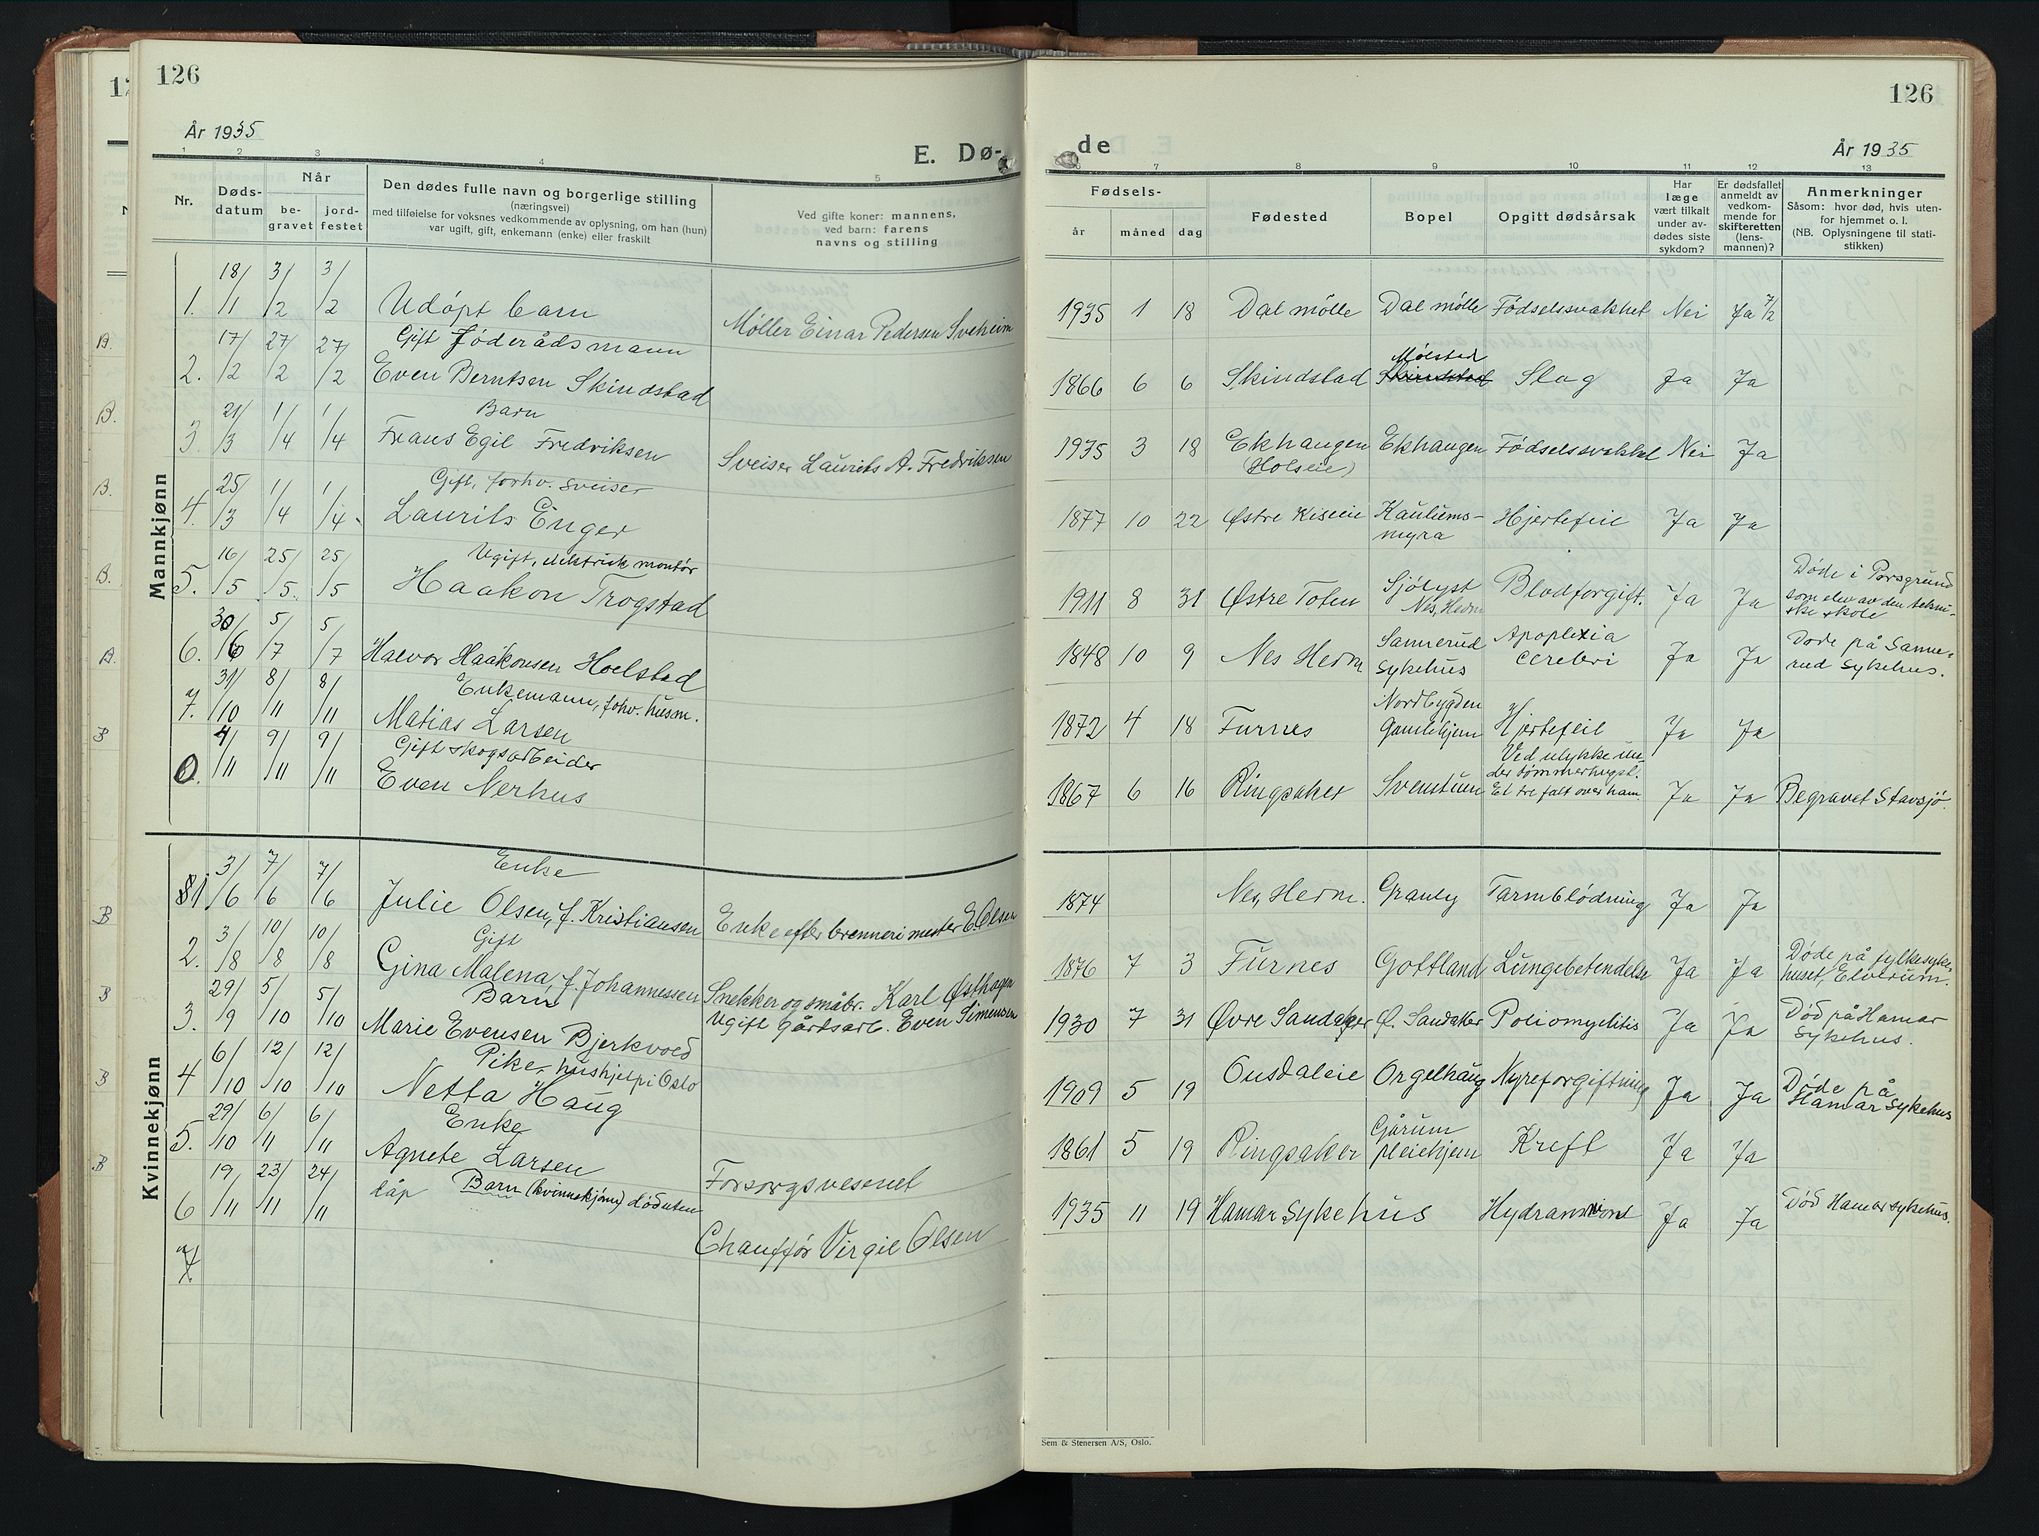 126
126
År 1935
E. Dø-
de
År 1935
1 2 3 4 5
7 8 9 10 11 12 13
Nr.
Døds-
datum
Når
be-
gravet
jord-
festet
Den dødes fulle navn og borgerlige stilling
(næringsvei)
med tilføielse for voksnes vedkommende av oplysning, om han (hun)
var ugift, gift, enkemann (enke) eller fraskilt
Ved gifte koner: mannens,
ved barn: farens
navns og stilling
Fødsels-
år måned dag
Fødested
Bopel
Opgitt dødsårsak
Har
læge
vært tilkalt
under av-
dødes siste
sykdom?
Er dødsfallet
anmeldt av
vedkom-
mende for
skifteretten
(lens-
mannen)?
Anmerkninger
Såsom: hvor død, hvis uten-
for hjemmet o. l.
(NB. Oplysningene til stati-
stikken)
Mannkjønn
1. 18/1 3/2 3/2 Udøpt barn Møller Einar Pedersen Sveheim 1935 1 18 Dal mølle Dal mølle Fødselssvakhet Nei Ja 7/2
Gift Føderådsmann
2. 17/2 27/2 27/2 Even Berntsen Skindstad 1866 6 6 Skindstad Skindstad Mælstad Slag Ja Ja
Barn
3. 21/3 1/4 1/4 Frans Egil Fredriksen Sveiser Laurits A. Fredriksen 1935 3 18 Ekhaugen (Holseie) Ekhaugen Fødselssvakhet Nei Ja
Gift, forhv. sveiser
4. 25/3 1/4 1/4 Laurits Enger 1877 10 22 Østre Kiseie Kaulums-
myra Hjertefeil Ja Ja
Ugift, elektrisk montør
5. 16/5 25/5 25/5 Haakon Trogstad 1911 8 31 Østre Toten Sjølyst
Nes, Hedm Blodforgift. Ja Ja Døde i Porsgrund
som elev av den tekni-
ske skole
6. 30/6 5/7 5/7 Halvor Haakonsen Hoelstad 1848 10 9 Nes Hedm Sannerud
sykehus Apoplexia
cerebri Ja Ja Døde på Sanne-
rud sykehus.
Enkemann, forhv. husm.
7. 31/10 8/11 8/11 Matias Larsen 1872 4 18 Furnes Nordbygden
Gamlehjem Hjertefeil Ja Ja
Gift skogsarbeider
4/11 9/11 9/11 Even Nerhus 1867 6 16 Ringsaker Svenstuen Ved ulykke un-
der tømmerhugst.
Et tre falt over ham. Ja Ja Begravet Stavsjø.
Kvinnekjønn
Enke
1 3/6 7/6 7/6 Julie Olsen, f. Kristiansen Enke efter brennerimester E. Olsen 1874 Nes, Hedm. Granly Tarmblødning Ja Ja
Gift
2. 3/8 10/8 10/8 Gina Malena, f. Johannessen Snekker og småbr. Karl Østhagen 1876 7 3 Furnes Gottland Lungebetendelse Ja Ja Døde på fylkesyke-
huset, Elverum.
Barn
3. 29/9 5/10 5/10 Marie Evensen Bjerkvold Ugift gårdsarb. Even Simensen 1930 7 31 Øvre Sandaker Ø. Sandaker Poliomyelitis Ja Ja Død på Hamar
sykehus.
Pike, hushjelp i Oslo
4 6/10 12/10 12/10 Netta Haug 1909 5 19 Ousdaleie Orgelhaug Nyreforgiftning Ja Ja Døde på
Hamar sykehus
Enke
5. 29/10 6/11 6/11 Agnete Larsen Forsorgsvesenet 1861 5 19 Ringsaker Gårum
pleiehjem Kreft Ja Ja
6 19/11 23/11 24/11 Barn (kvinnekjønn) død uten
dåp Chauffør Virgil Olsen 1935 11 19 Hamar sykehus Ja Ja Død Hamar sykehus.
7
A.
B.
B.
B.
A.
B
B
B
B
B
Sem & Stenersen A/S, Oslo.